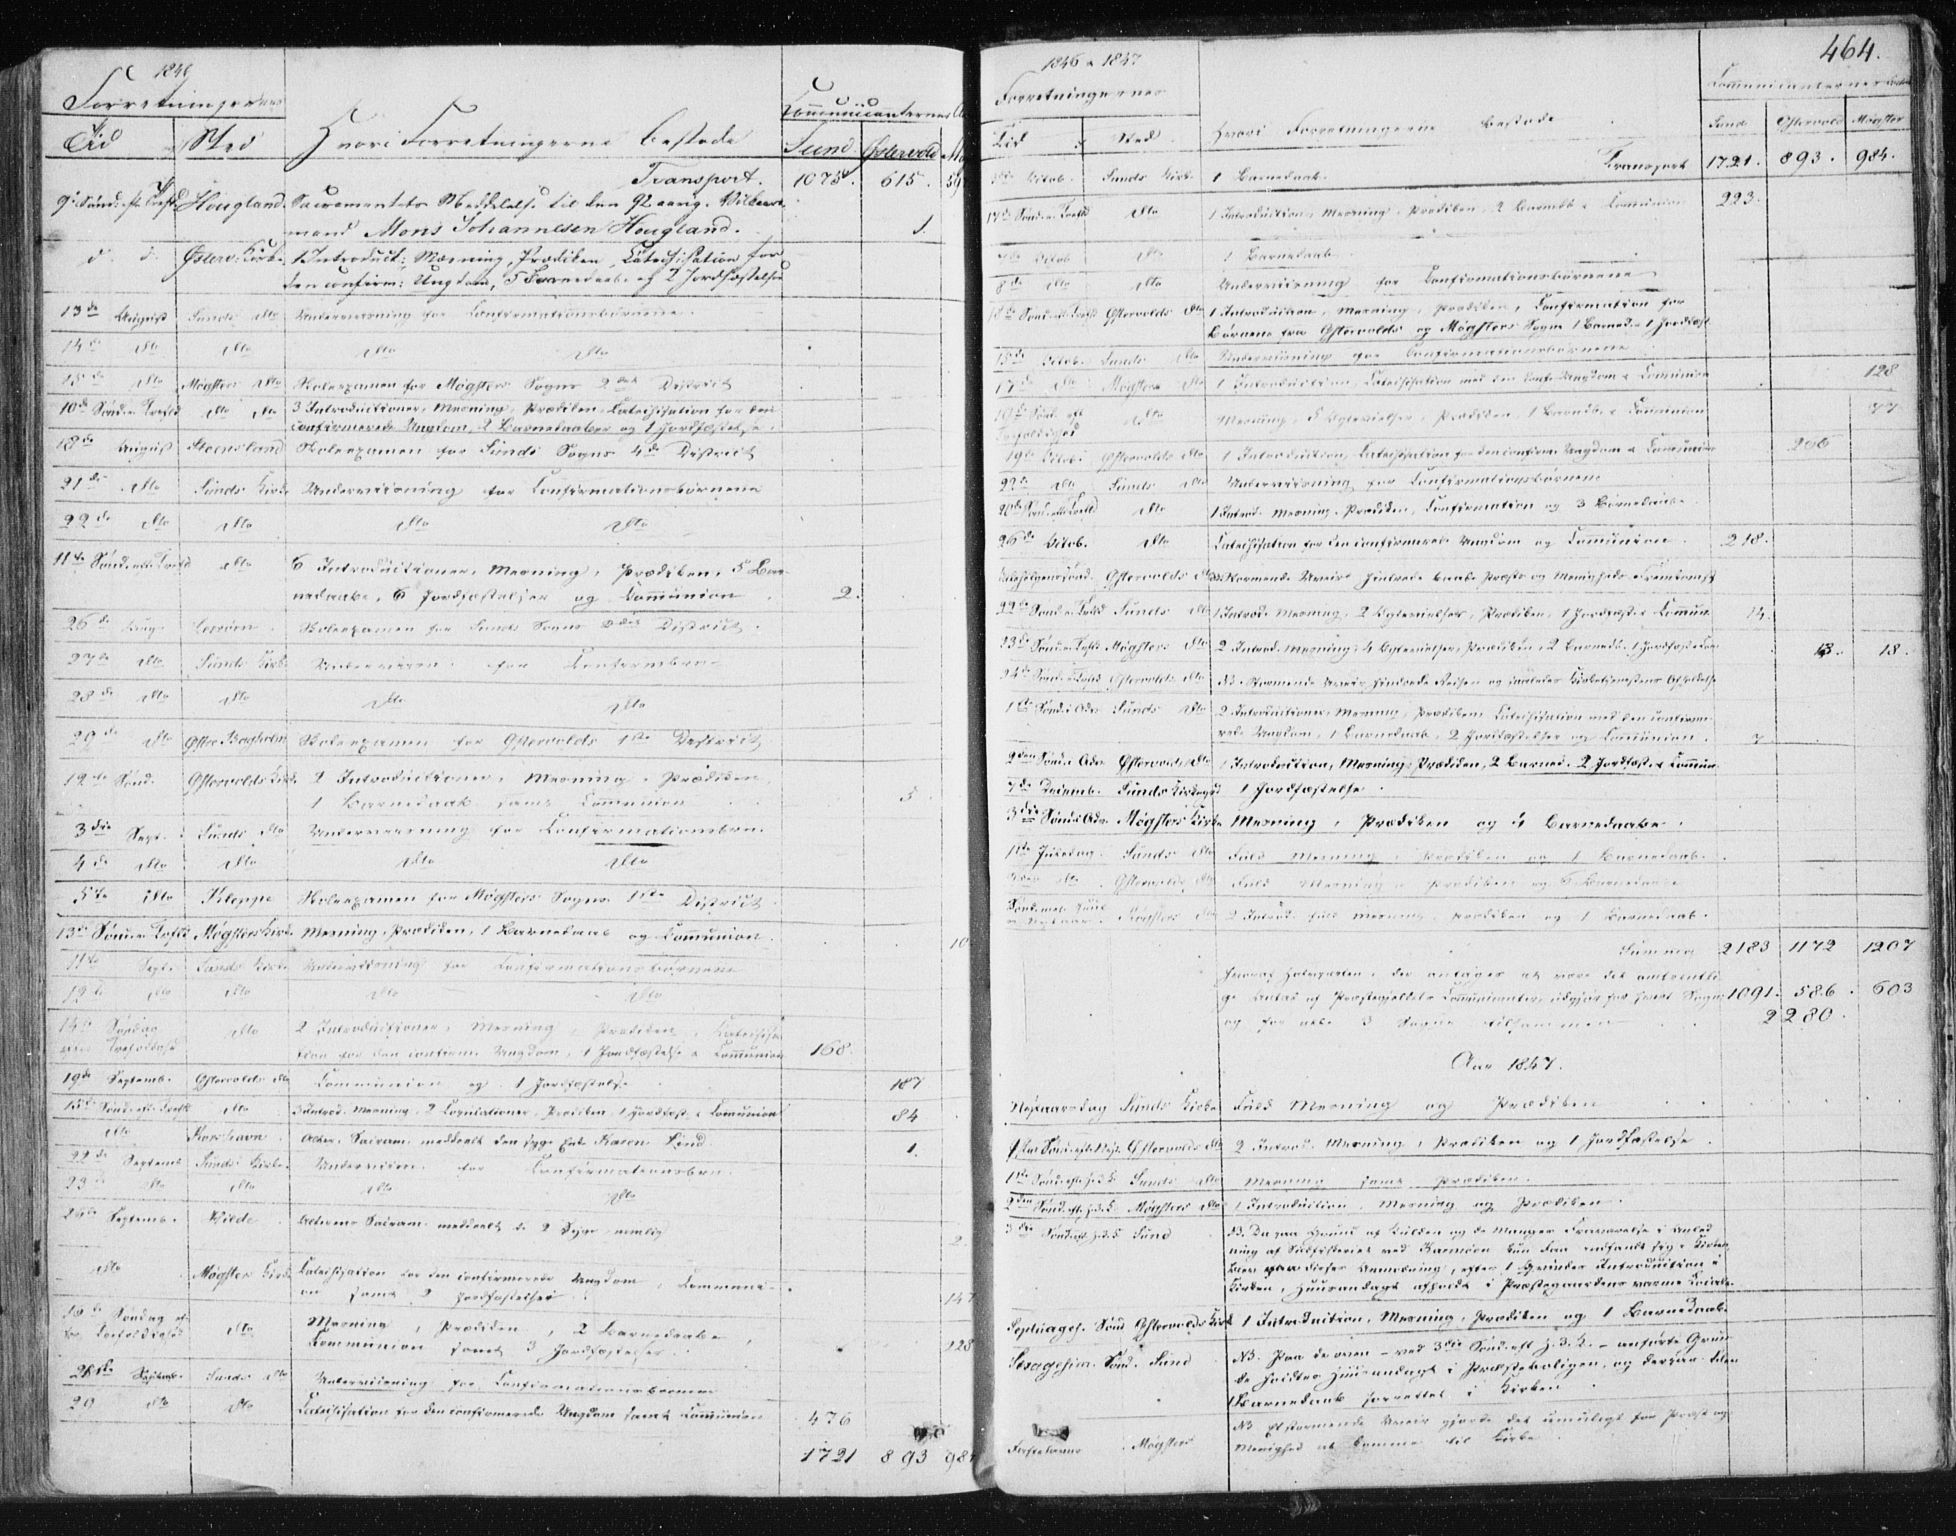 1846
Forretningernes
Communicanternes
Tid Sted Hvori Forretningerne bestode Sund Østervold
Transport. 1075. 615.
9de Sønd. eft. Trefd Hougland. Sacramentets Meddelelse til den 92 aarig. Vilkaars
mand Mons Johannesen Hougland. 1.
d. d. Østerv. Kirke 1 Introduct: Messning, Prædiken, Catechisation for
den confirm: Ungdom, 5 Barnedaab. og 2 Jordfæstelser
13de August Sunds dto Underviisning for Confirmationsbørnene.
14de dto dto dto dto
15de dto Møgsters dto Skoleexamen for Møgsters Sogns 2det District
10de Sønd. e. Trefd dto dto 3 Introductioner, Messning, Prædiken, Catechisation for den
confirmerede Ungdom, 2 Barnedaaber og 1 Jordfæstelse.
18de August Steensland Skoleexamen for Sunds Sogns 4de District
21de dto Sunds Kirke Underviisning for Confirmationsbørnene
22de dto dto dto dto
11te Sønd. eft. Trefd dto 6 Introductioner, Messning, Prædiken, 5 Bar-
nedaabe, 6 Jordfæstelser og Communion 2.
26de Aug. Skoleexamen for Sunds Sogns District.
27de dto Sunds Kirke Underviisn. for Confirmbrn.
28de dto dto dto dto
29de dto Skoleexamen for Østervolds 1ste District
12te Sønd. Østervolds Kirke 2 Introductioner, Messning, Prædiken,
1 Barnedaab samt Communion 5.
3die Sept. Sunds dto Underviisning for Confirmationsbrn.
4de dto dto dto dto
5te dto Kleppe Skoleexamen for Møgsters Sogns 1ste District
13de Sønd. e. Trefd Møgsters Kirke Messning, Prædiken, 1 Barnedaab og Communion. 10
11te Sept. Sunds Kirke Underviisning for Confirmationsbørnene
12te dto dto dto dto
14de Søndag dto 2 Introductioner, Messning, Prædiken, Catechisa-
tion for den confirm. Ungdom, 1 Jordfæstelse & Communion 168.
19de Septemb. Østervolds dto Communion og 1 Jordfæstelse 187
15de Sønd. eft. Trefd dto 3 Introd. Messning, 2 Copulationer, Prædiken, 1 Jordfæst. & Communion 84
dto Korshavn Alter. Sacram. meddeelt den syge Enke Karen Lind 1.
22de Septemb Sunds Kirke Underviisn. for Confirmationsbrn.
23de dto dto dto dto
26de Septemb. Vilde Alterens Sacram. meddeelt de 2 Syge, nemlig 2.
dto Møgsters Kirke Catechisation for den confirmerede Ungdom, Communi-
on samt 2 Jordfæstelser 147
16de Søndag ef-
ter Trefoldighed dto Messning, Prædiken, 2 Barnedaabe
Communion samt 3 Jordfæstelser. 128
Septemb. Sunds dto Underviisning for Confirmationsbørnene
29 dto dto Catechisation for den confirmerede Ungdom samt Communion 476
1721 893 984
464.
1846 & 1847
Forretningernes
Communicanternes
Tid Sted Hvori Forretningerne bestode Sund Østervold Møgster
Transport 1721. 893. 984.
3die Octob. Sunds Kirke 1 Barnedaab.
17de Sønd. e. Trefd dto 1 Introduction, Messning, Prædiken, 2 Barnedb & Communion 223.
7de Octob dto 1 Barnedaab.
8de dto dto Underviisning for Confirmationsbørnene
18de Sønd. eft. Trefd Østervolds dto 1 Introduction, Messning, Prædiken, Confirmation for
Børnene fra Østervolds og Møgsters Sogne 1 Barned. 1 Jordfæst
15de Octob. Sunds dto Underviisning for Confirmationsbørnene
17de dto Møgsters dto 1 Introduction, Catechisation med den conf. Ungdom & Communion 128
19de Sønd. eft
Trefoldighed dto Messning, 5 Egtevielser, Prædiken, 1 Barnedb. & Communion 77
19de Octob. Østervolds dto 1 Introduction, Catechisation for den confirm. Ungdom & Communion 206
22de dto Sunds dto Underviisning for Confirmationsbørnene
20de Sønd. eft. Trefd dto 1 Introd. Messning, Prædiken, Confirmation og 3 Barnedaabe.
26de Octob. dto Catechisation for den confirmerede Ungdom og Communion. 218.
Allehelgens Sønd. Østervolds dto Stormende Uveir hindrede baade Præsts og Menigheds Fremkomst
22de Sønd. e. Trefd Sunds dto 1 Introd. Messning, 2 Egtevielser, Prædiken, 1 Jordfæst. & Commun. 14.
23de Sønd. e. Trefd Møgsters dto 2 Introd. Messning, 4 Egtevielser, Prædiken, 2 Barnedb. 1 Jordfæst. & Com 13. 18.
24de Sønd. e. Trefd Østervolds dto NB. Stormende Uveir hindrede Reisen og saaledes Kirketjenestens Afholdelse
1ste Sønd. i Adv. Sunds dto 2 Introductioner, Messning, Prædiken, Catechisation med den confirme-
rede Ungdom, 1 Barnedaab, 2 Jordfæstelser og Communion. 7
2den Sønd. i Adv. Østervolds dto 1 Introduction, Messning, Prædiken, 2 Barned. 2 Jordfæst. & Commun
7de Decemb. Sunds Kirkegrd 1 Jordfæstelse.
3die Sønd. i Adv. Møgsters Kirke Messning, Prædiken og 4 Barnedaabe.
1ste Juledag. Sunds dto Fuld Messning, Prædiken og 1 Barnedaab.
2den dto Østervolds dto Fuld Messning, Prædiken og 6 Barnedaabe
Sønd. mel. Juul
og Nytaar Møgsters dto 2 Introd. fuld Messning, Prædiken og 1 Barnedaab.
Summa 2183 1172 1207
hvoraf Halvparten, der antages at være det omtrentli-
ge Antal af Præstegjeldets Communicanter, udgjør for hvert Sogn 1091. 586. 603
og for alle 3 Sogne tilsammen 2280.
Aar 1847.
Nytaarsdag Sunds Kirke Fuld Messning og Prædiken
Sønd. eft. Nyt. Østervolds dto 2 Introd. Messning, Prædiken og 1 Jordfæstelse.
1ste Sønd. eft. H.3.K. Sunds dto Messning samt Prædiken.
2den Sønd. eft. H.3.K. Møgsters dto 1 Introduction, Messning og Prædiken.
3die Sønd. eft. H.3.K Sund NB. Da paa Grund af Kulden og de Manges Fraværelse i Anled-
ning af Sildfiskeriet ved Karmøen kun Faa indfandt sig i Kirken,
blev paa disses Anmodning, efter 1 Qvindes Introduction i
Kirken, Huusandagt afholdt i Præstegaardens varme Locale.
Septuages. Sønd Østervolds Kirke 1 Introduction, Messning, Prædiken og 1 Barnedaab.
Sexagesim. Sønd. Sund NB. Paa de oven - ved 3die Sønd. eft H.3.K. - anførte Grun-
de holdtes Huusandagt i Præsteboligen, og derpaa blev
1 Barnedaab forrettet i Kirken.
Fastelavns Møgsters NB Et stormende Uveir gjorde det umuligt for Præst og
Menighed at komme til Kirke.